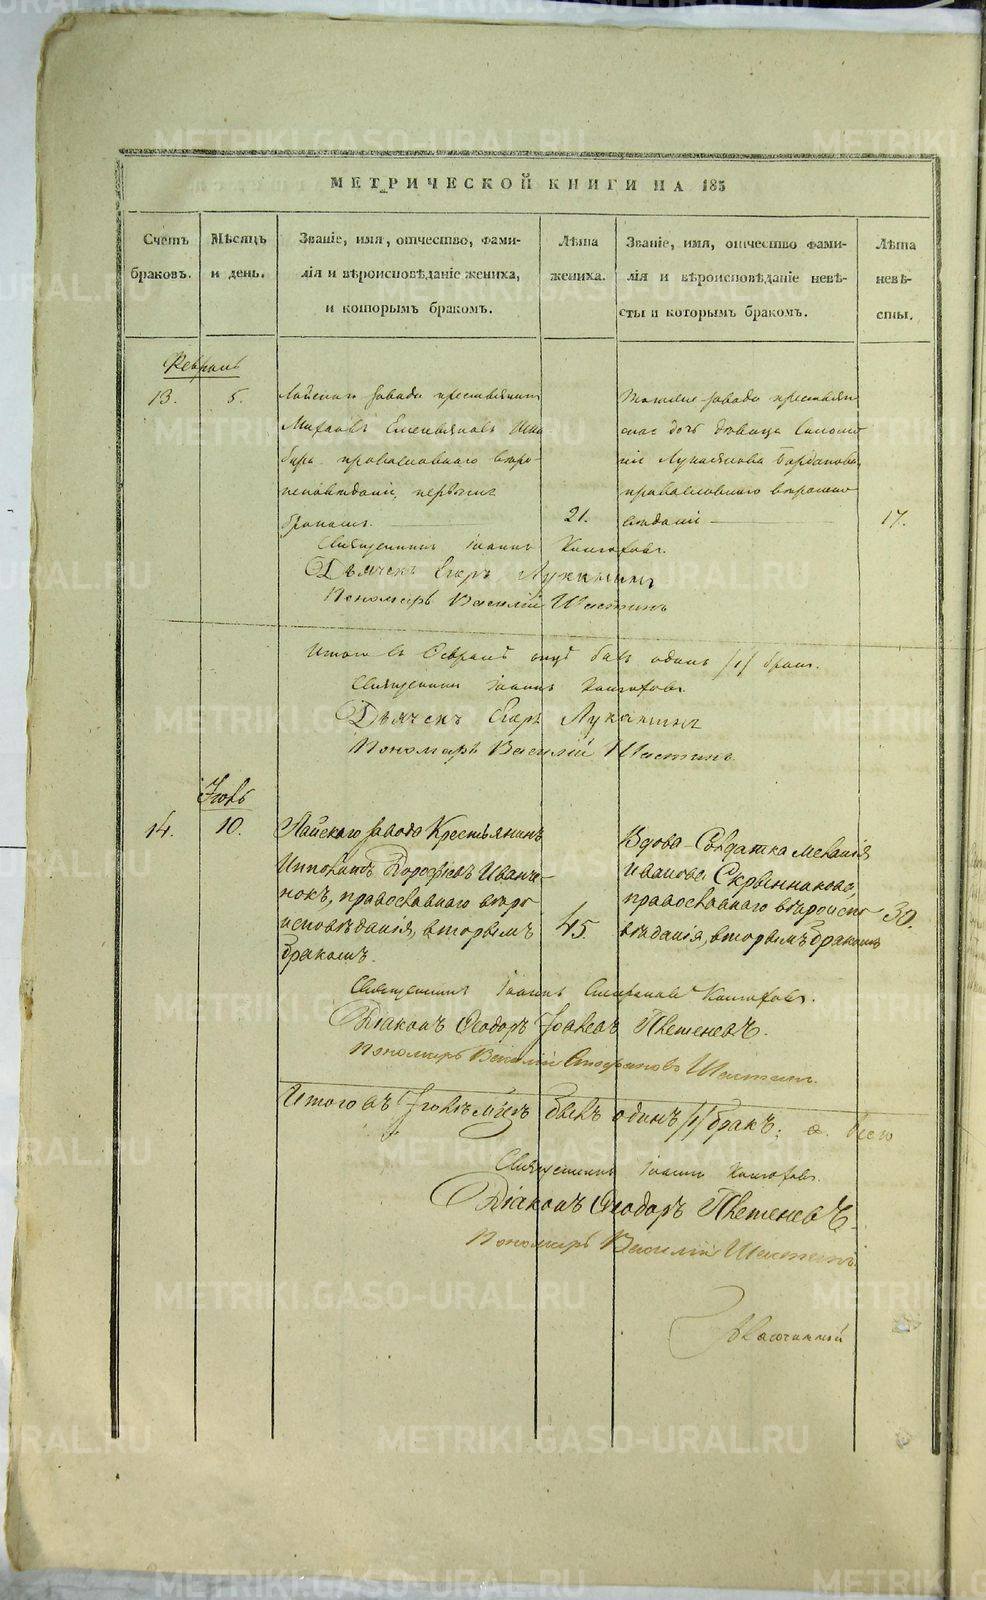 МЕТРИЧЕСКОЙ КНИГИ НА 185
Счетъ браковъ.
Мѣсяцъ и день.
Званіе, имя, отчество, фами-
лія и вѣроисповѣданіе жениха,
и которымъ бракомъ.
Лѣта жениха.
Званіе, имя, отчество фами-
лія и вѣроисповѣданіе невѣ-
сты и которымъ бракомъ.
Лѣта невѣ-
сты.
Февраль
13.
5.
Лайскаго завода крестьянинъ
Михаилъ Емельяновъ
православнаго вѣро-
исповѣданія, первымъ
бракомъ.
21.
Тогоже завода крестьян
ская дочь дѣвица
Лукіянова
православнаго вѣроиспо
вѣданія
17.
Священникъ Іоаннъ
Дьячекъ Егоръ Лукканинъ
Пономарь Василій Шастинъ
Итого въ Февралѣ мцѣ былъ одинъ /1/ бракъ.
Священникъ Іоаннъ
Дьячекъ Егоръ Лукканинъ
Пономарь Василій Шастинъ
Іюль
14.
10.
Лайскаго завода Крестьянинъ
Ипполитъ Дорофѣевъ Иванче-
нокъ, православнаго вѣро
исповѣданія, вторымъ
бракомъ.
45.
Вдова Солдатка Меланія
Иванова Скрынникова,
православнаго вѣроиспо
вѣданія, вторымъ бракомъ
30.
Священникъ Іоаннъ Стефановъ
Діаконъ Ѳеодоръ Іовлевъ
Пономарь Василій Стефановъ Шастинъ.
Итого въ Іюлѣ мцѣ былъ одинъ /1/ бракъ; а всего
Священникъ Іоаннъ
Діаконъ Ѳеодоръ
Пономарь Василій Шастинъ.
METRIKI.GASO-URAL.RU